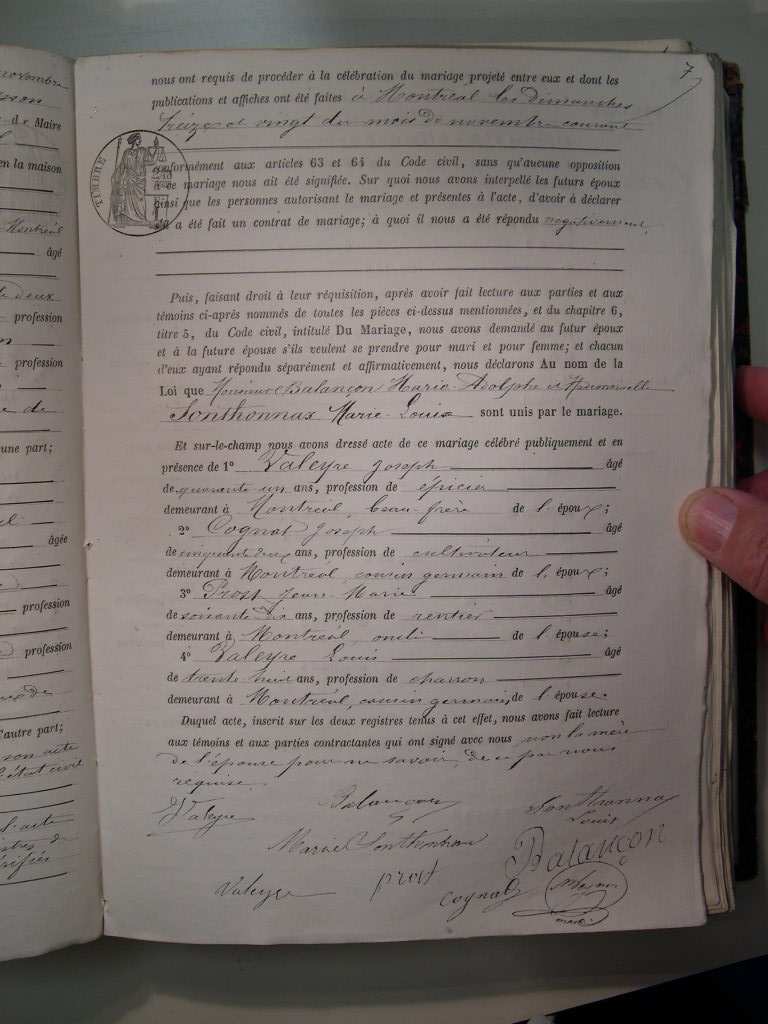 novembre
7
nous ont requis de procéder à la célébration du mariage projeté entre eux et dont les
publications et affiches ont été faites à Montréal les dimanches
treize et vingt du mois de novembre courant
de Maire
en la maison
TIMBRE
conformément aux articles 63 et 64 du Code civil, sans qu'aucune opposition
à ce mariage nous ait été signifiée. Sur quoi nous avons interpellé les futurs époux
ainsi que les personnes autorisant le mariage et présentes à l'acte, d'avoir à déclarer
s'il a été fait un contrat de mariage; à quoi il nous a été répondu négativement.
Montréal
âgé
deux
profession
profession
une part;
âgée
profession
profession
'autre part;
son acte
l'état civil
l'acte
Puis, faisant droit à leur réquisition, après avoir fait lecture aux parties et aux
témoins ci-après nommés de toutes les pièces ci-dessus mentionnées, et du chapitre 6,
titre 5, du Code civil, intitulé Du Mariage, nous avons demandé au futur époux
et à la future épouse s'ils veulent se prendre pour mari et pour femme; et chacun
d'eux ayant répondu séparément et affirmativement, nous déclarons Au nom de la
Loi que Monsieur Balançon Marie Adolphe et Mademoiselle
Sonthonnax Marie-Louise sont unis par le mariage.
Et sur-le-champ nous avons dressé acte de ce mariage célébré publiquement et en
présence de 1° Valeyre Joseph âgé
de quarante un ans, profession de épicier
demeurant à Montréal, beau-frère de l'époux;
2° Cognat Joseph âgé
de cinquante deux ans, profession de cultivateur
demeurant à Montréal, cousin germain de l'époux;
3° Prost Jean-Marie âgé
de soixante dix ans, profession de rentier
demeurant à Montréal, oncle de l'épouse;
4° Valeyre Louis âgé
de trente huit ans, profession de charron
demeurant à Montréal, cousin germain, de l'épouse.
Duquel acte, inscrit sur les deux registres tenus à cet effet, nous avons fait lecture
aux témoins et aux parties contractantes qui ont signé avec nous, non la mère
de l'épouse pour ne savoir, de ce par nous
requise.
J Valeyre Balançon Sonthonnax
Louis
Marie Sonthonnax Balançon
Valeyre prost Cognat